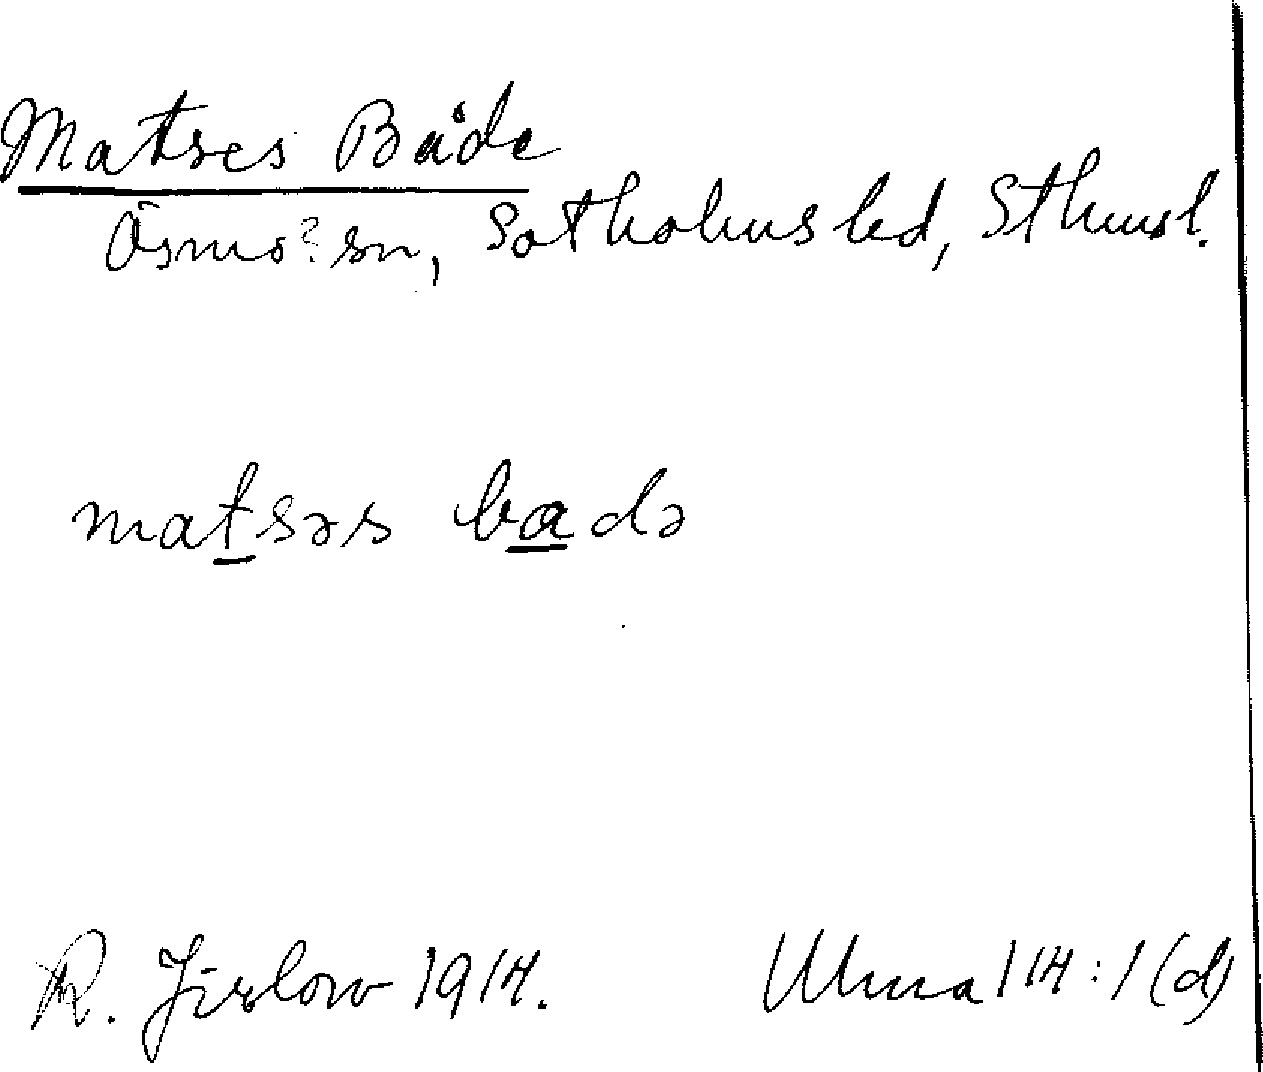 Matses Både
Ösmo? sn, Sotholms hd, Sthmsl.
matsəs badə
R. Jirlow 1914.
Ulma 114:1(d)